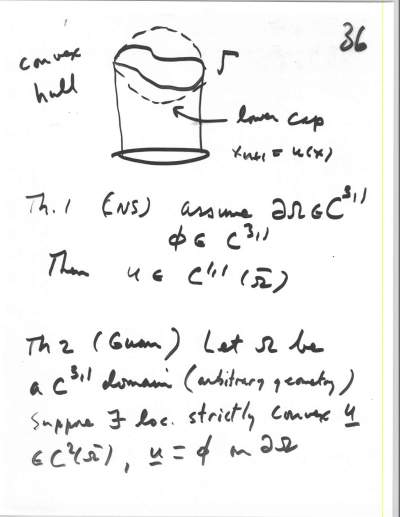 36
convex
hull
Γ
lower cap
xₙ₊₁ = u(x)
Th. 1 (CNS) assume ∂Ω ∈ C³,¹
φ ∈ C³,¹
Then u ∈ C¹,¹(Ω̄)
Th 2 (Guan) Let Ω be
a C³,¹ domain (arbitrary geometry)
Suppose ∃ loc. strictly convex u̲
∈ C²(Ω̄), u̲ = φ on ∂Ω